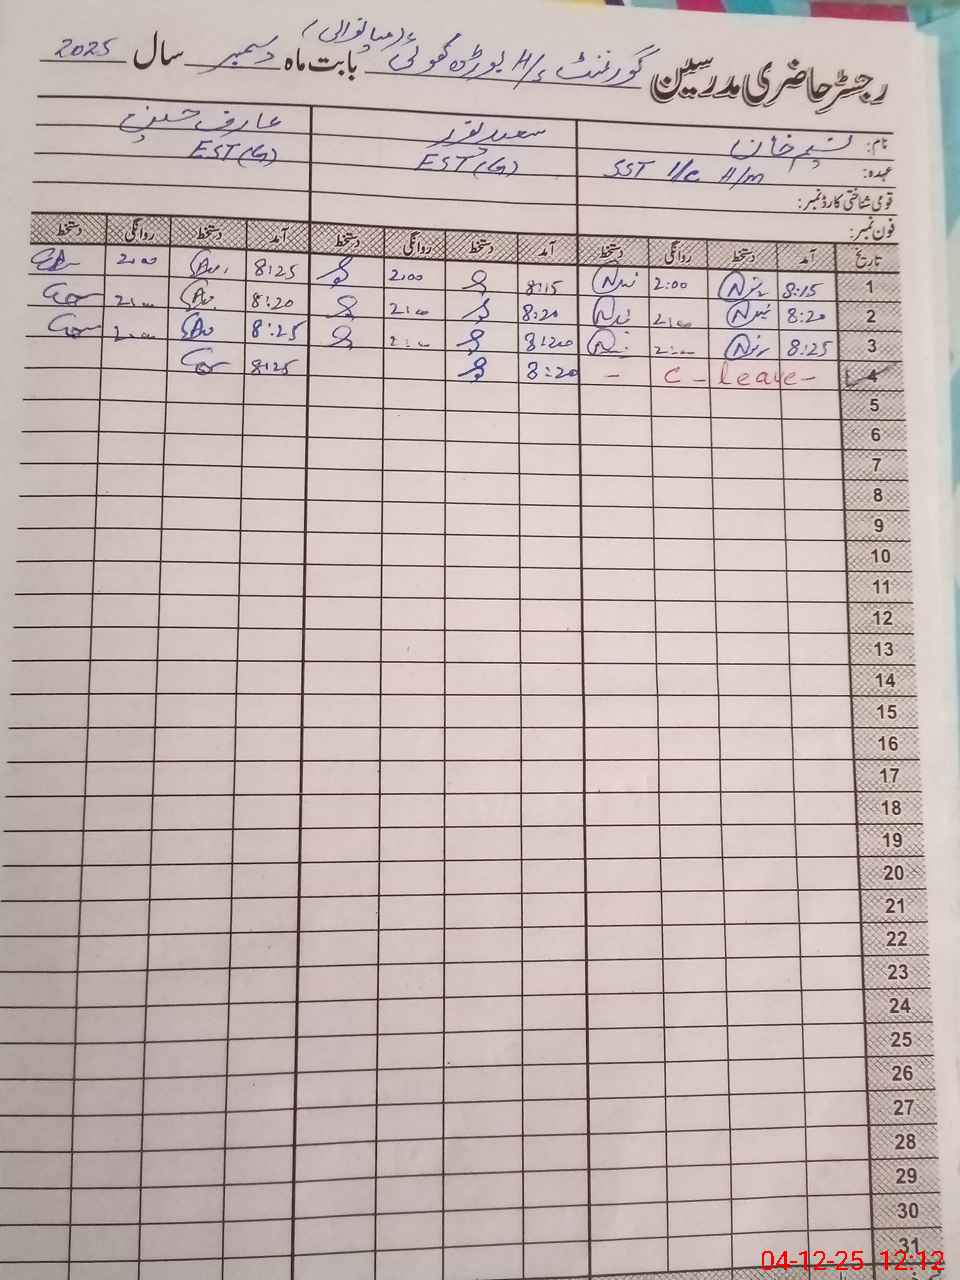 رجسٹر حاضری مدرسین گورنمنٹ H/S بابت ماہ دسمبر سال 2025
نام: نسیم خان سعید نور عارف حسین
عہدہ: SST I/C H/M EST(G) EST(G)
قومی شناختی کارڈ نمبر:
فون نمبر:
تاریخ آمد دستخط روانگی دستخط آمد دستخط روانگی دستخط آمد دستخط روانگی دستخط
1 8:15 2:00 8:15 2:00 8:25 2:00
2 8:20 2:00 8:20 2:00 8:20 2:00
3 8:25 2:00 8:20 2:00 8:25 2:00
4 C - leave - - 8:20 8:25
5
6
7
8
9
10
11
12
13
14
15
16
17
18
19
20
21
22
23
24
25
26
27
28
29
30
31
04-12-25 12:12